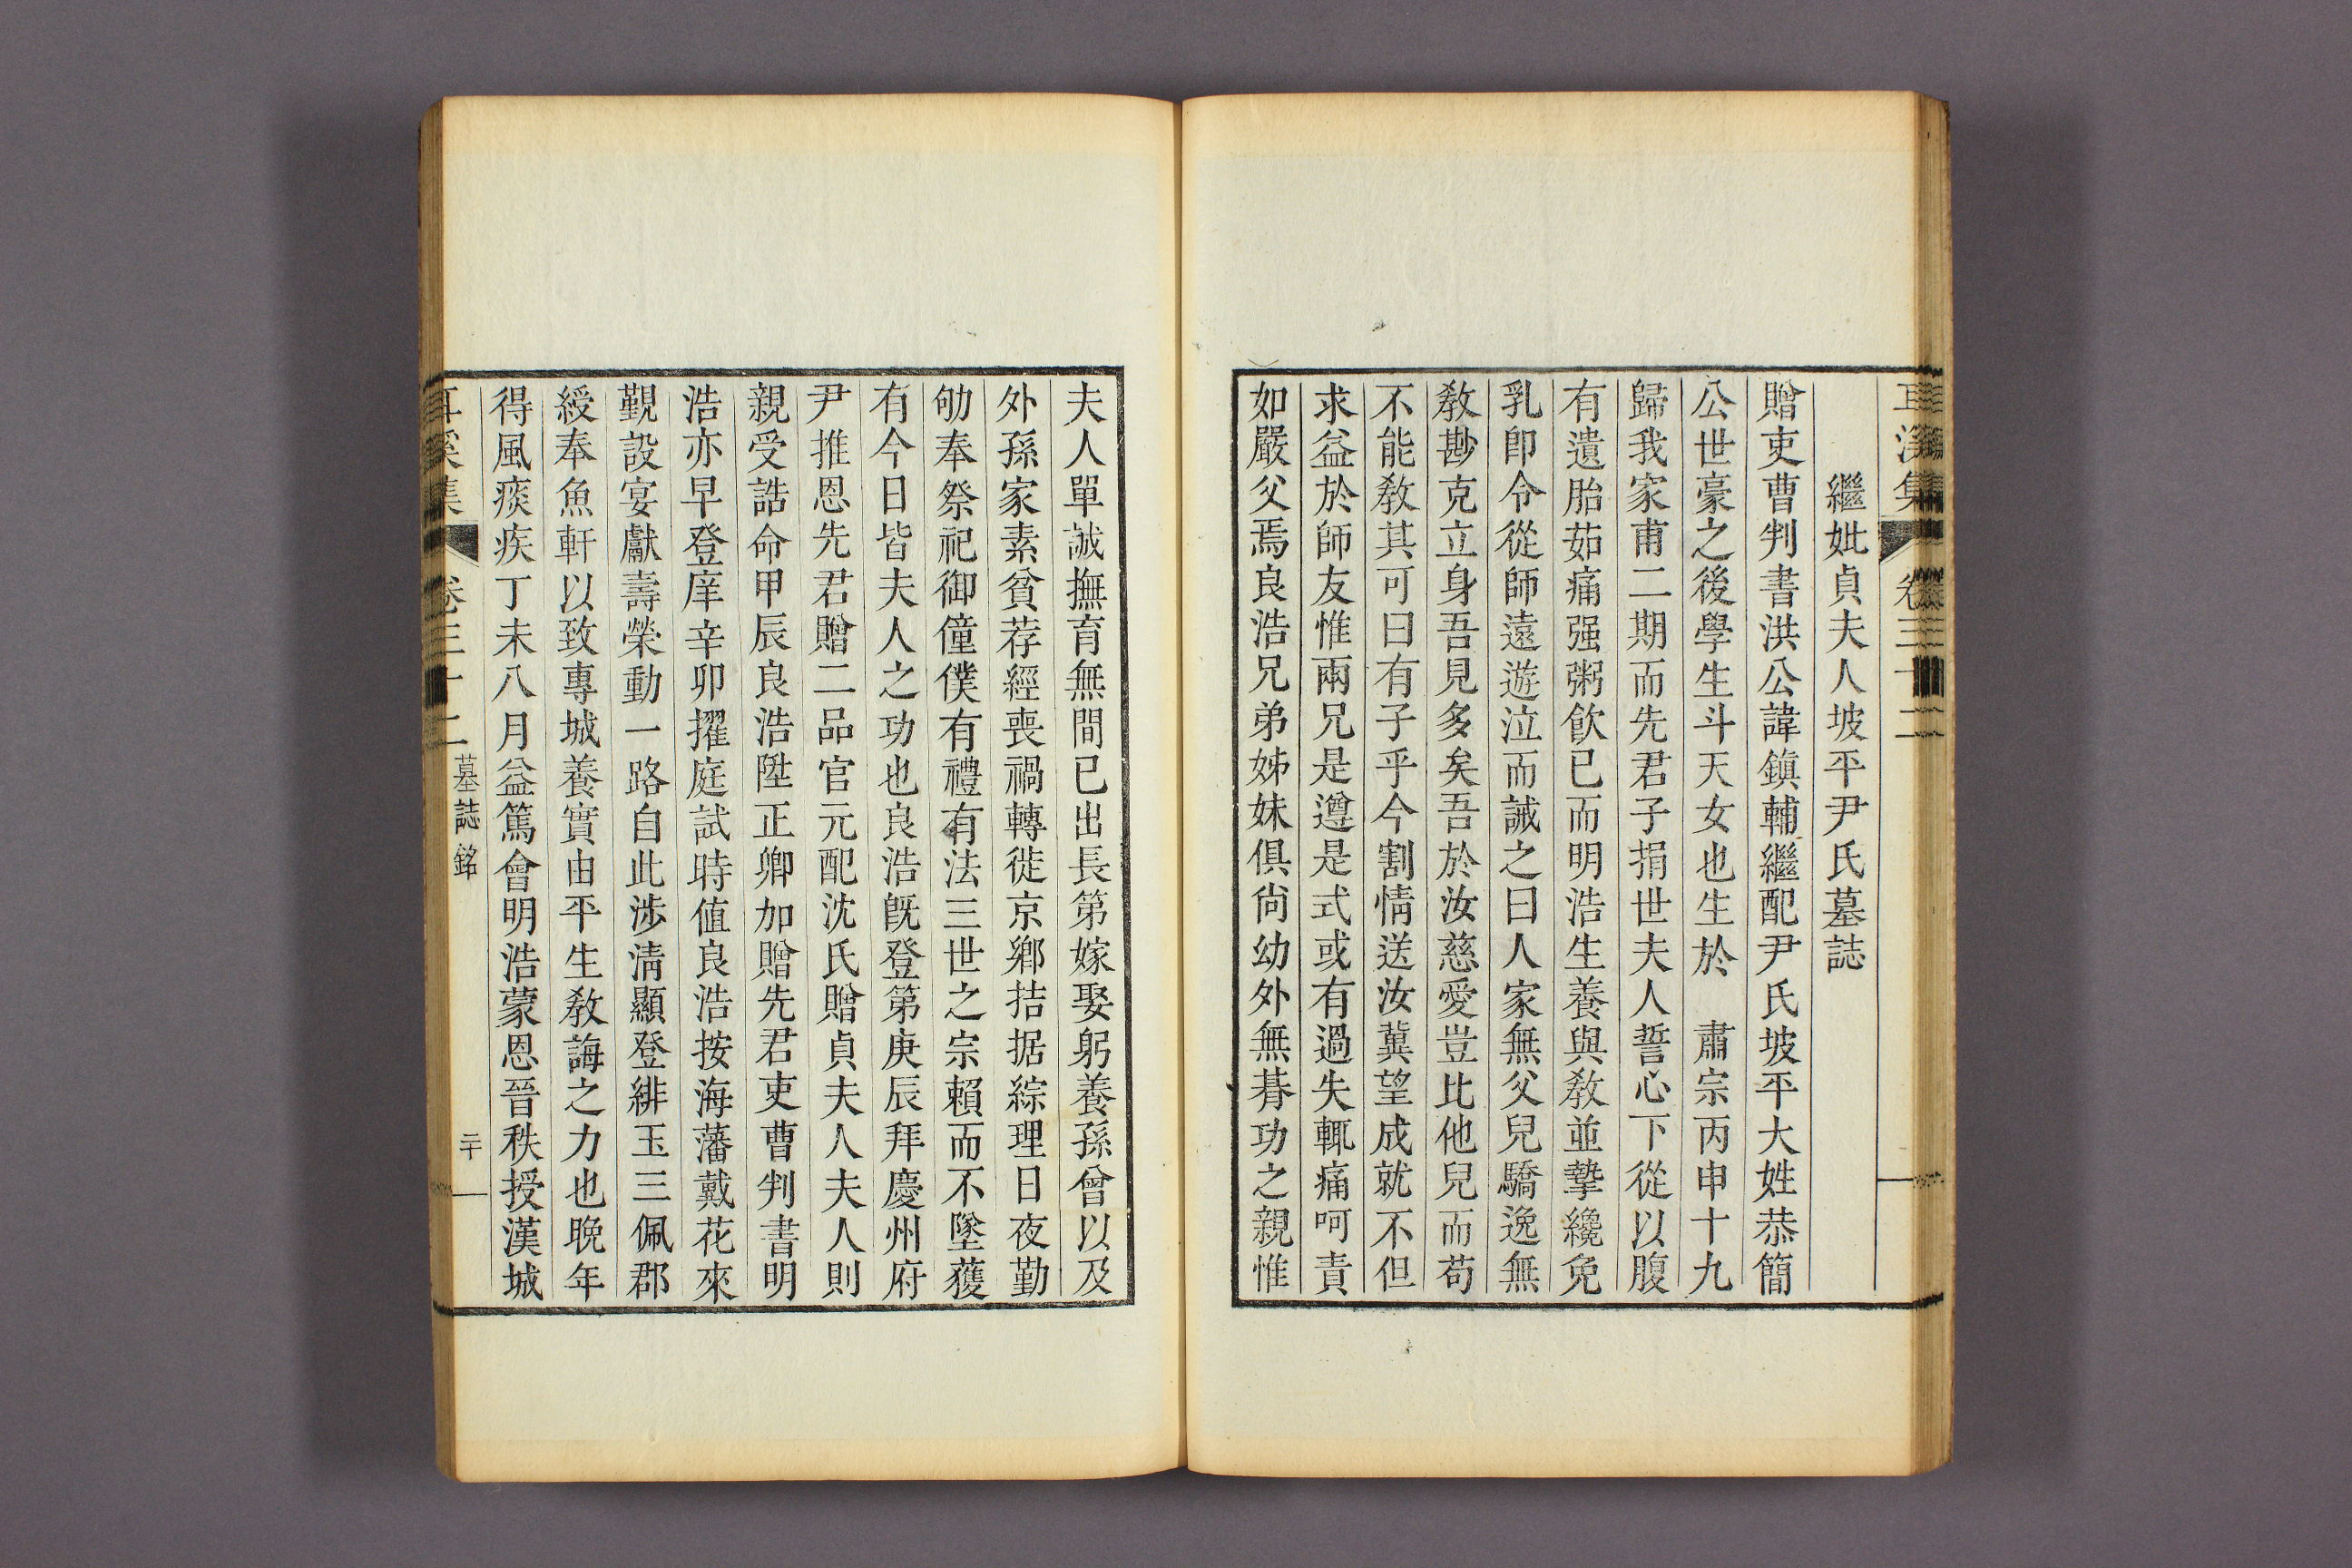 耳溪集 卷三十二
繼妣貞夫人坡平尹氏墓誌
贈吏曹判書洪公諱鎭輔繼配尹氏坡平大姓恭簡
公世豪之後學生斗天女也生於 肅宗丙申十九
歸我家甫二期而先君子捐世夫人誓心下從以腹
有遺胎茹痛强粥飮已而明浩生養與敎並摯纔免
乳卽令從師遠遊泣而誡之曰人家無父兒驕逸無
敎尠克立身吾見多矣吾於汝慈愛豈比他兒而苟
不能敎其可曰有子乎今割情送汝冀望成就不但
求益於師友惟兩兄是遵是式或有過失輒痛呵責
如嚴父焉良浩兄弟姊妹俱尙幼外無朞功之親惟
夫人單誠撫育無間已出長第嫁娶躬養孫曾以及
外孫家素貧荐經喪禍轉徙京鄕拮据綜理日夜勤
劬奉祭祀御僮僕有禮有法三世之宗賴而不墜蔭
有今日皆夫人之功也良浩旣登第庚辰拜慶州府
尹推恩先君贈二品官元配沈氏贈貞夫人夫人則
親受誥命甲辰良浩陞正卿加贈先君吏曹判書明
浩亦早登庠辛卯擢庭試時値良浩按海藩戴花來
觀設宴獻壽榮動一路自此涉淸顯登緋玉三佩郡
綬奉魚軒以致專城養實由平生敎誨之力也晩年
得風痰疾丁未八月益篤會明浩蒙恩晉秩授漢城
耳溪集 卷三十二 墓誌銘 二十